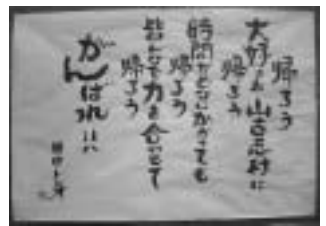 帰ろう
大好きな山古志村に
帰ろう
時間がどれだけかかっても
帰ろう
皆んなで力を合わせて
帰ろう
がんばれ